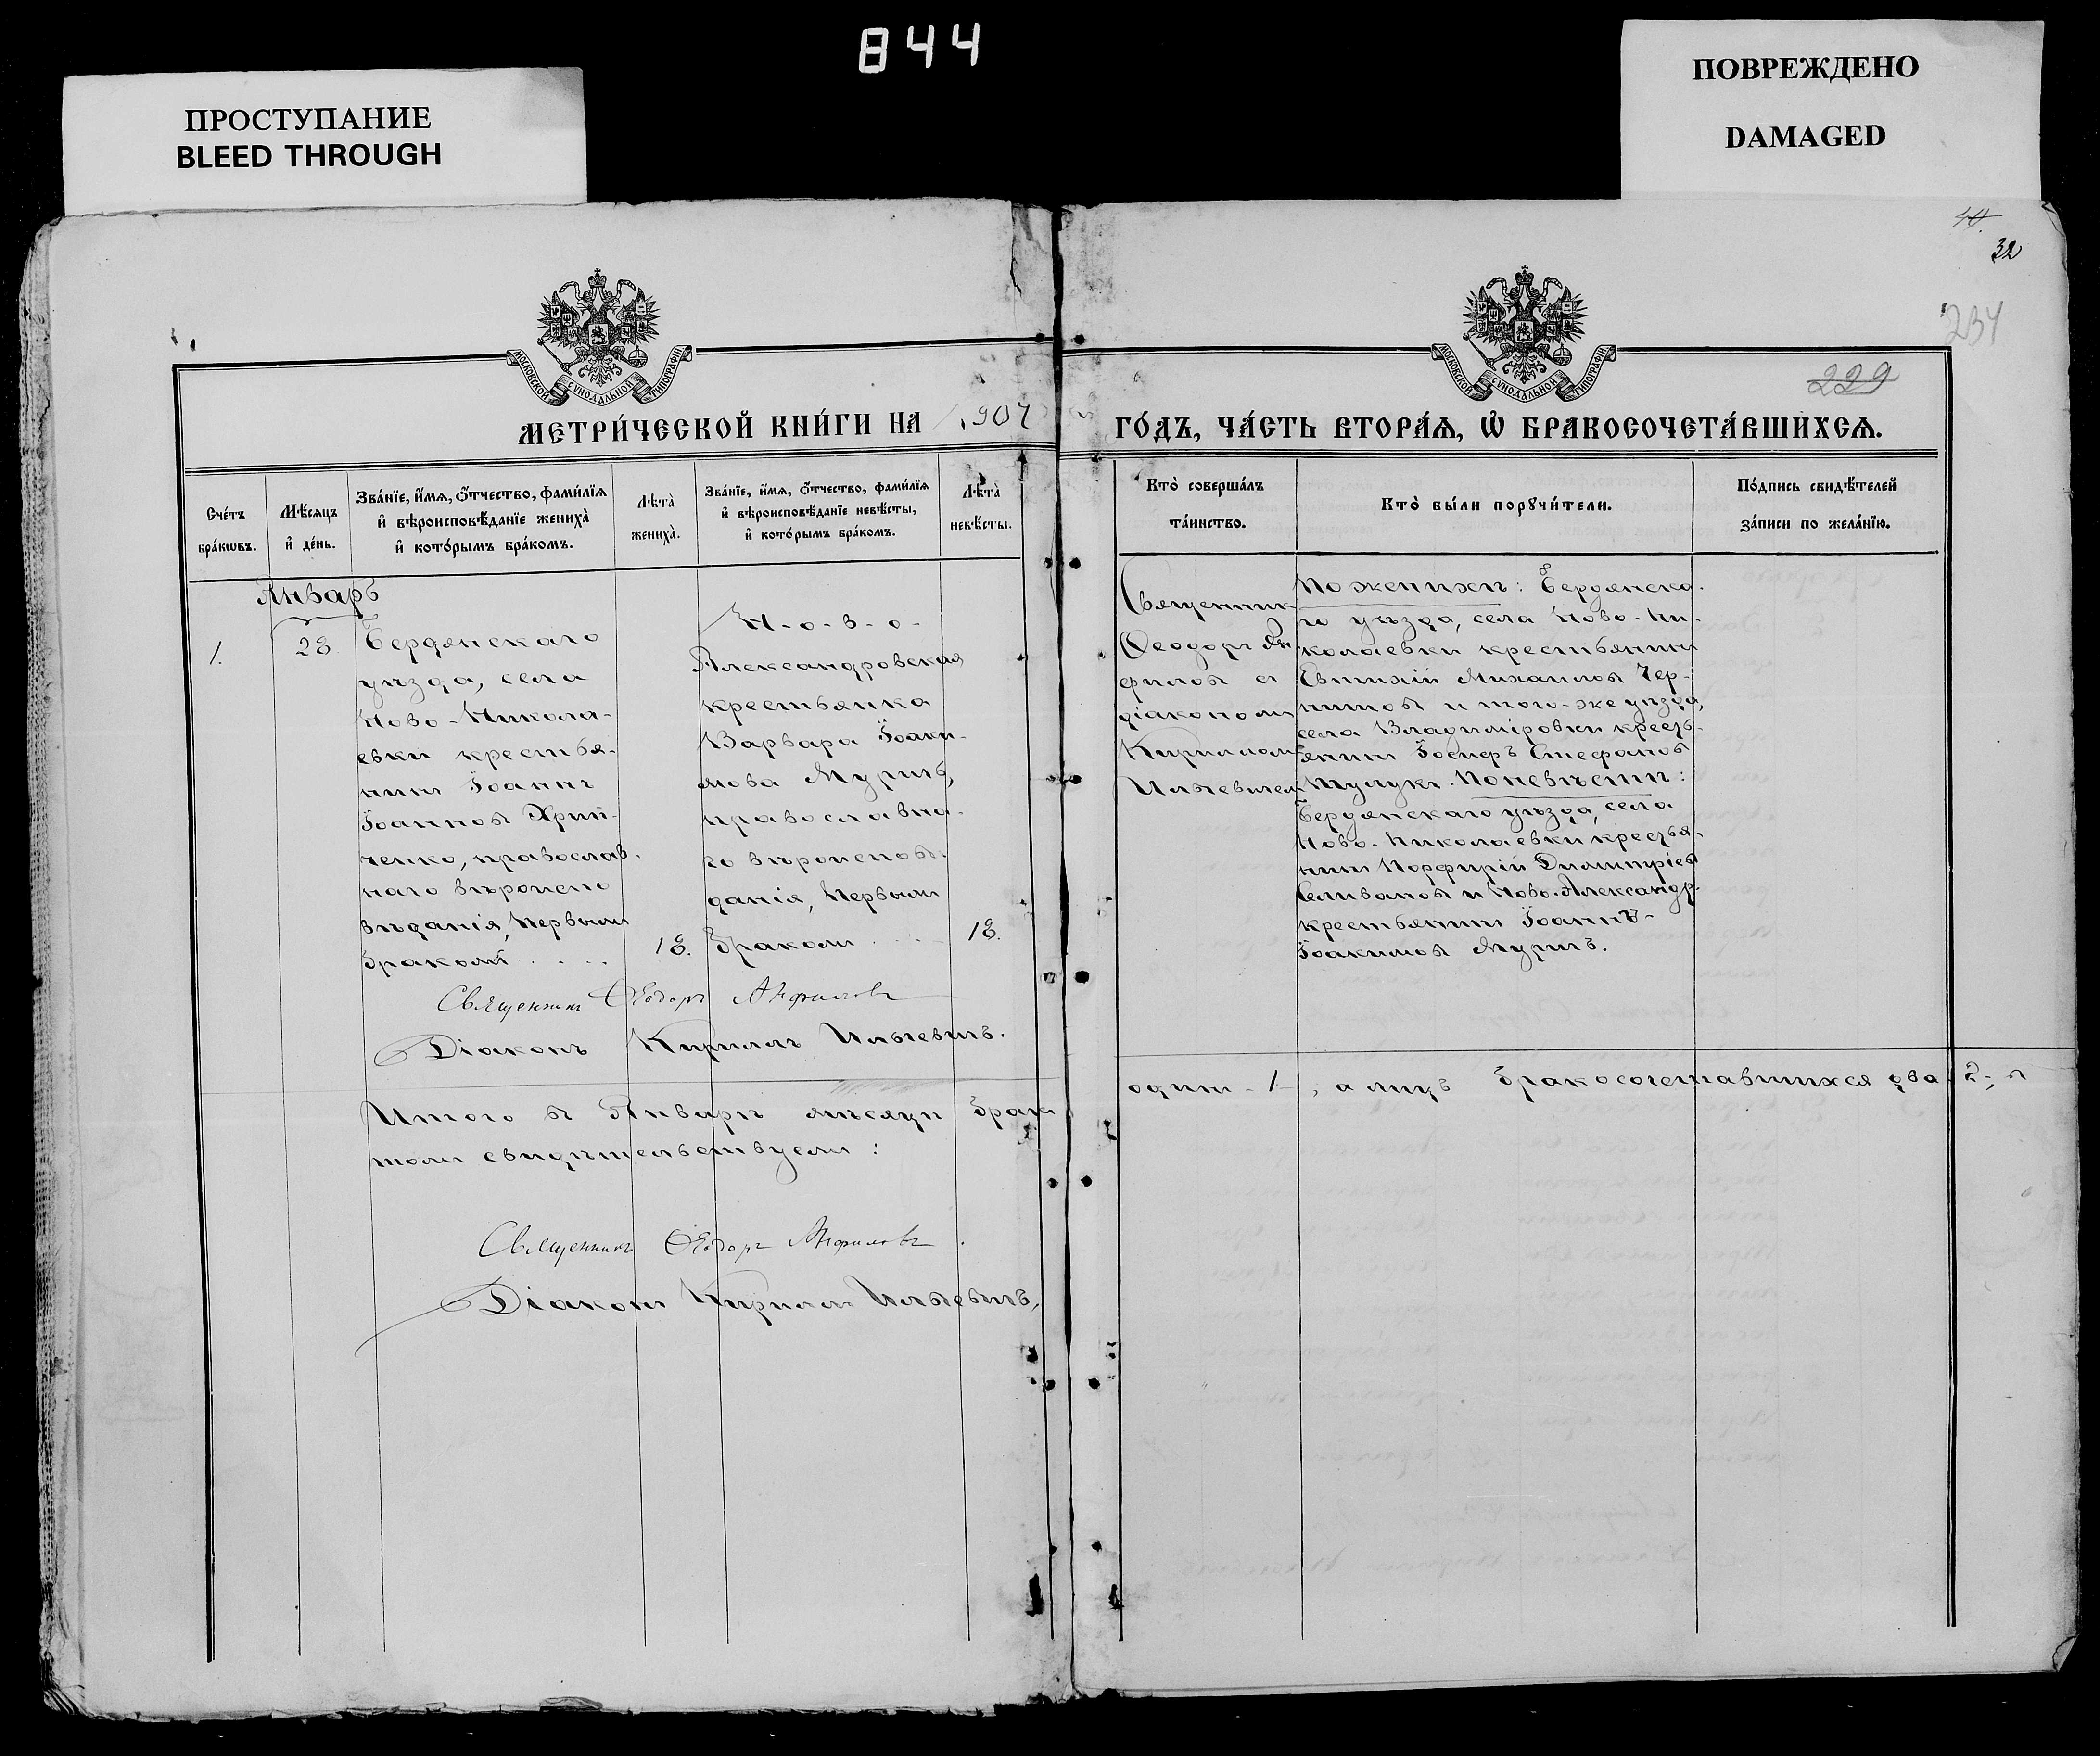 844
ПРОСТУПАНИЕ
BLEED THROUGH
ПОВРЕЖДЕНО
DAMAGED
32
234
229
МОСКОВСКОЙ СѴНОДАЛЬНОЙ ТИПОГРАФІИ
МОСКОВСКОЙ СѴНОДАЛЬНОЙ ТИПОГРАФІИ
МЕТРИ́ЧЕСКОЙ КНИ́ГИ НА 1907
ГО́ДЪ, ЧА́СТЬ ВТОРА́Ѧ, Ѡ҆ БРАКОСОЧЕТА́ВШИХСѦ.
Сче́тъ
бра́кѡвъ.
Мѣ́сѧцъ
и҆ де́нь.
Зва́нїе, и҆́мѧ, ѻ҆́тчество, фами́лїѧ
и҆ вѣроисповѣ́данїе жениха̀
и҆ кото́рымъ бра́комъ.
Лѣта̀
жениха̀.
Зва́нїе, и҆́мѧ, ѻ҆́тчество, фами́лїѧ
и҆ вѣроисповѣ́данїе невѣ́сты,
и҆ кото́рымъ бра́комъ.
Лѣта̀
невѣ́сты.
Кто̀ соверша́лъ
та́инство.
Кто̀ бы́ли порꙋчи́тели.
По́дпись свидѣ́телей
за́писи по жела́нїю.
Январь
1.
28
Бердянскаго
уѣзда, села
Ново-Никола-
евки крестья-
нинъ Іоаннъ
Іоанновъ Хрип-
ченко, православ-
наго вѣроиспо
вѣданія, первымъ
бракомъ . . . .
18.
Н-о-в-о-
Александровская
крестьянка
Варвара Іоаки-
мова Муричъ,
православна-
го вѣроисповѣ-
данія, первымъ
бракомъ . . .
18.
Священникъ
Ѳеодоръ Ан-
филовъ съ
діакономъ
Кирилломъ
Ильевичемъ
По женихѣ: Бердянска-
го уѣзда, села Ново-Ни-
колаевки крестьянинъ
Евтихій Михаиловъ Чер-
нитовъ и того-же уѣзда,
села Владиміровки кресть-
янинъ Іосифъ Стефановъ
Шулукъ. По невѣстѣ:
Бердянскаго уѣзда, села
Ново-Николаевки крестья-
нинъ Порфирій Димитріевъ
Селивановъ и Ново-Александр.
крестьянинъ Іоаннъ-
Іоакимовъ Муричъ.
Священникъ Ѳеодоръ Анфиловъ
Діаконъ Кириллъ Ильевичъ.
Итого въ Январѣ мѣсяцѣ бракъ одинъ - 1 - , а лицъ бракосочетавшихся два - 2 -, въ
томъ свидѣтельствуемъ:
Священникъ Ѳеодоръ Анфиловъ.
Діаконъ Кириллъ Ильевичъ,